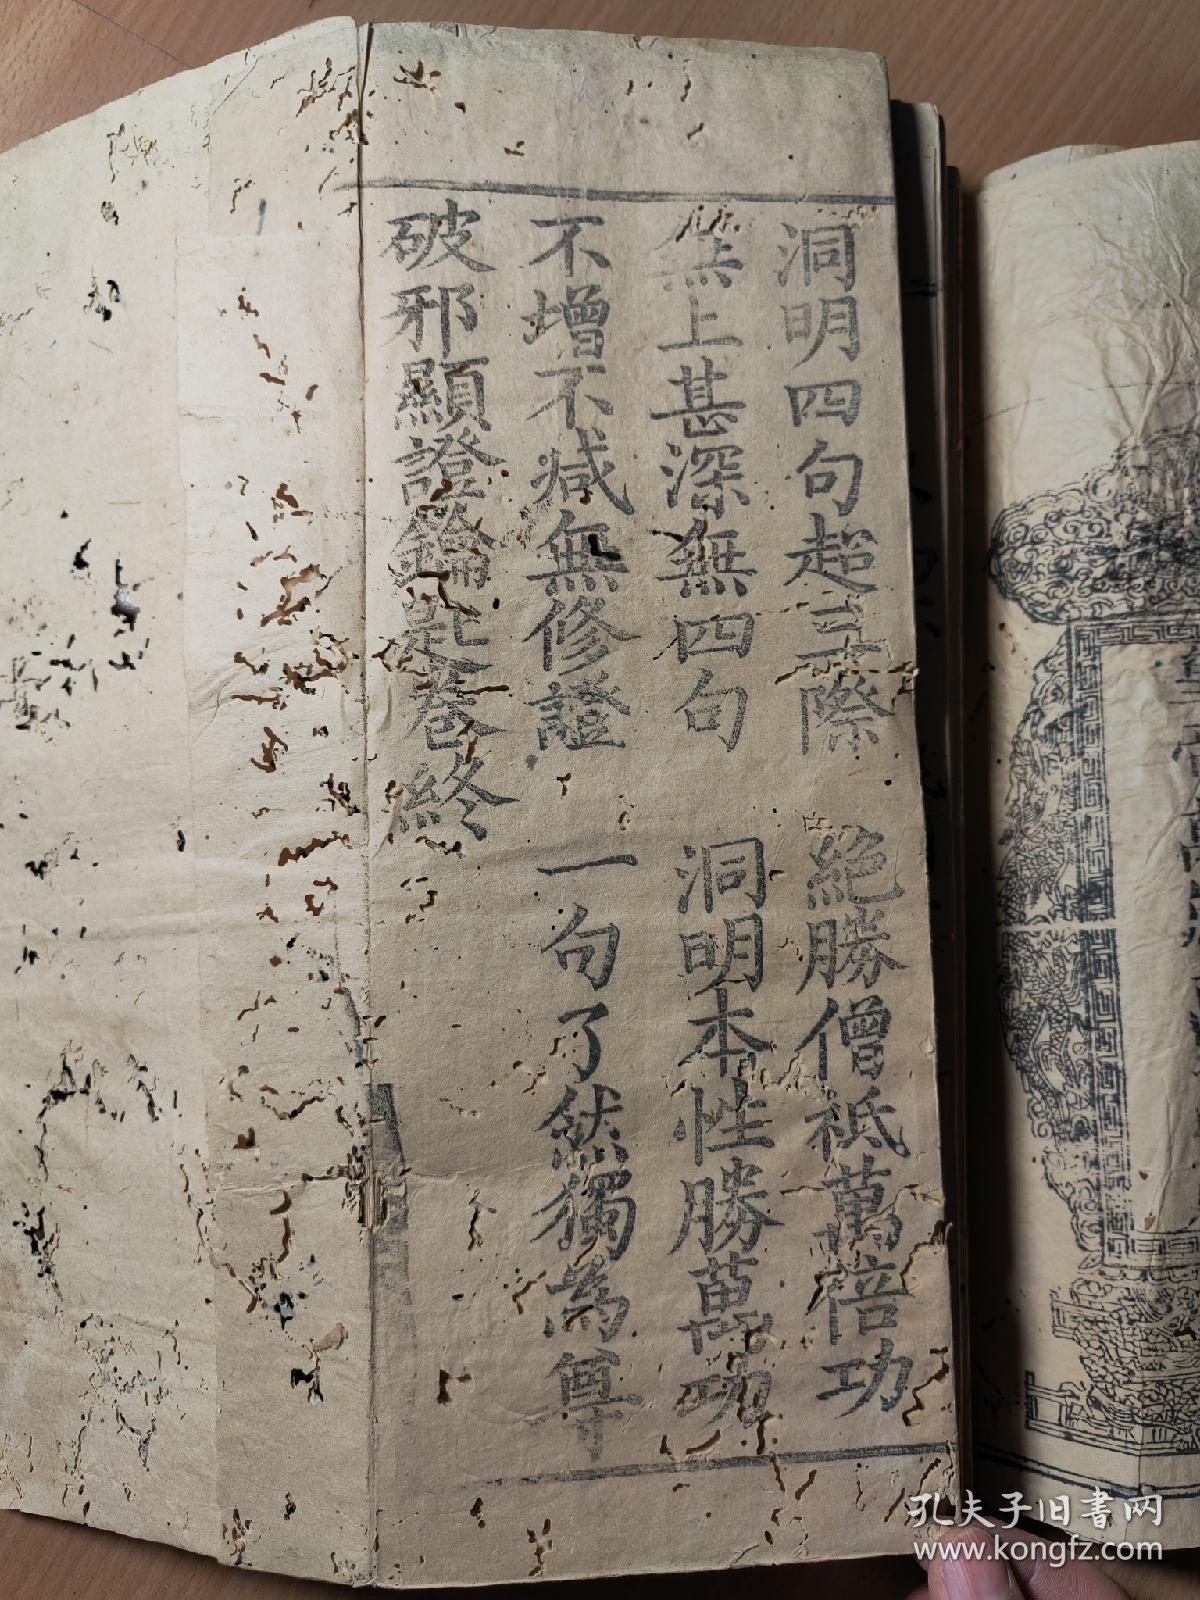 洞明四句超三際　絶勝僧祇萬倍功
無上甚深無四句　洞明本性勝萬功
不增不减無修證　一句了然獨為尊
破邪顯證鑰匙卷終
孔夫子旧书网
www.kongfz.com